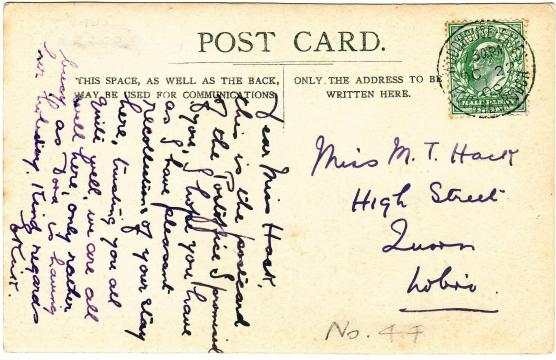 POST CARD.
THIS SPACE, AS WELL AS THE BACK,
MAY BE USED FOR COMMUNICATIONS.
ONLY THE ADDRESS TO BE
WRITTEN HERE.
Dear Miss Hack,
this is the postcard
of the I promised
you, I hope you have
as I have pleasant
recollections of your stay
here, trusting you all
quite well, we are all
well here, only rather
busy as Dora is having
her holiday. Kind regards
Miss M. T. Hack
High Street
Quorn
Lobro.
No. 44